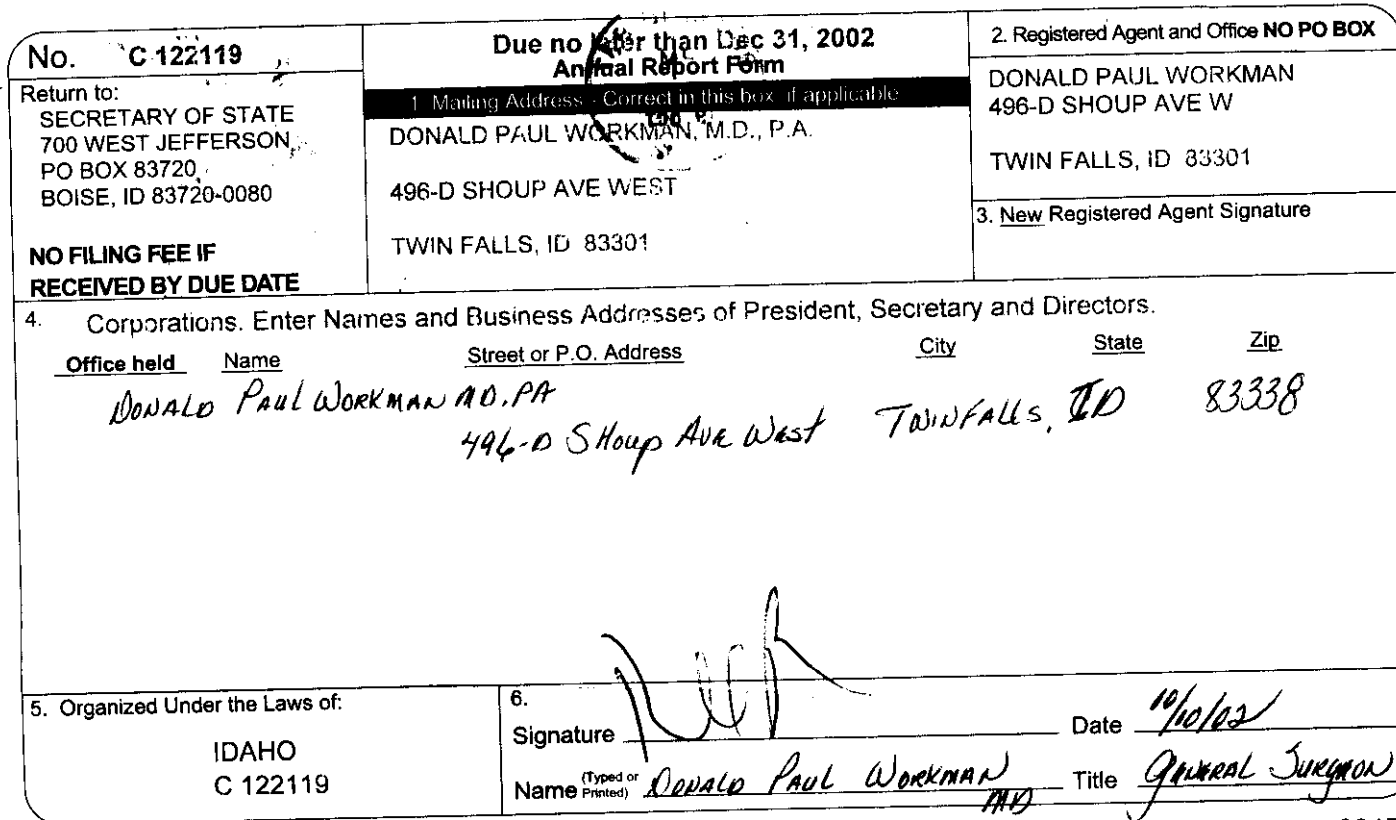 No. C 122119
Return to:
SECRETARY OF STATE
700 WEST JEFFERSON
PO BOX 83720
BOISE, ID 83720-0080
NO FILING FEE IF
RECEIVED BY DUE DATE
Due no later than Dec 31, 2002
Annual Report Form
1 Mailing Address - Correct in this box if applicable
DONALD PAUL WORKMAN, M.D., P.A.
496-D SHOUP AVE WEST
TWIN FALLS, ID 83301
2. Registered Agent and Office NO PO BOX
DONALD PAUL WORKMAN
496-D SHOUP AVE W
TWIN FALLS, ID 83301
3. New Registered Agent Signature
4. Corporations. Enter Names and Business Addresses of President, Secretary and Directors.
Office held Name Street or P.O. Address City State Zip
DONALD PAUL WORKMAN MD. PA
496-D SHoup AVE West TWIN FALLS, ID 83338
5. Organized Under the Laws of:
IDAHO
C 122119
6.
Signature Date 10/10/02
Name (Typed or Printed) DONALD PAUL WORKMAN MD Title GENERAL SURGEON